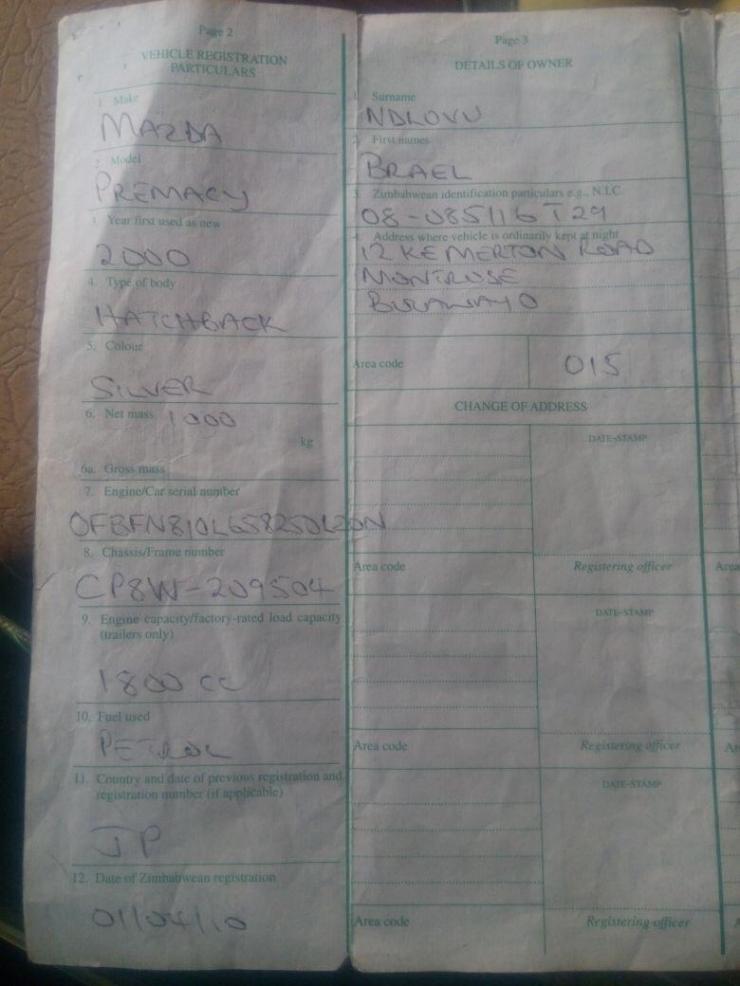 Page 2
VEHICLE REGISTRATION
PARTICULARS
1. Make
MAZDA
2. Model
PREMACY
3. Year first used as new
2000
4. Type of body
HATCHBACK
5. Colour
SILVER
6. Net mass 1000
kg
6a. Gross mass
7. Engine/Car serial number
8. Chassis/Frame number
CP8W-209504
9. Engine capacity/factory-rated load capacity
(trailers only)
1800 cc
10. Fuel used
PETROL
11. Country and date of previous registration and
registration number (if applicable)
JP
12. Date of Zimbabwean registration
01/04/10
Page 3
DETAILS OF OWNER
1. Surname
NDLOVU
2. First names
BRAEL
3. Zimbabwean identification particulars e.g., N.I.C.
08-085116 T 29
4. Address where vehicle is ordinarily kept at night
12 KEMERTON ROAD
MONTROSE
BULAWAYO
Area code
015
CHANGE OF ADDRESS
DATE-STAMP
Area code
Registering officer
Area
DATE-STAMP
Area code
Registering officer
DATE-STAMP
Area code
Registering officer